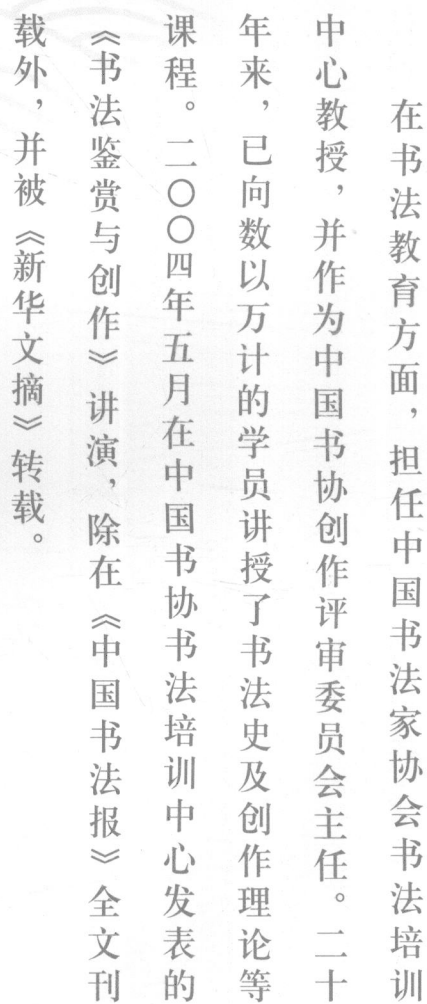 在书法教育方面，担任中国书法家协会书法培训
中心教授，并作为中国书协创作评审委员会主任。二十
年来，已向数以万计的学员讲授了书法史及创作理论等
课程。二〇〇四年五月在中国书协书法培训中心发表的
《书法鉴赏与创作》讲演，除在《中国书法报》全文刊
载外，并被《新华文摘》转载。